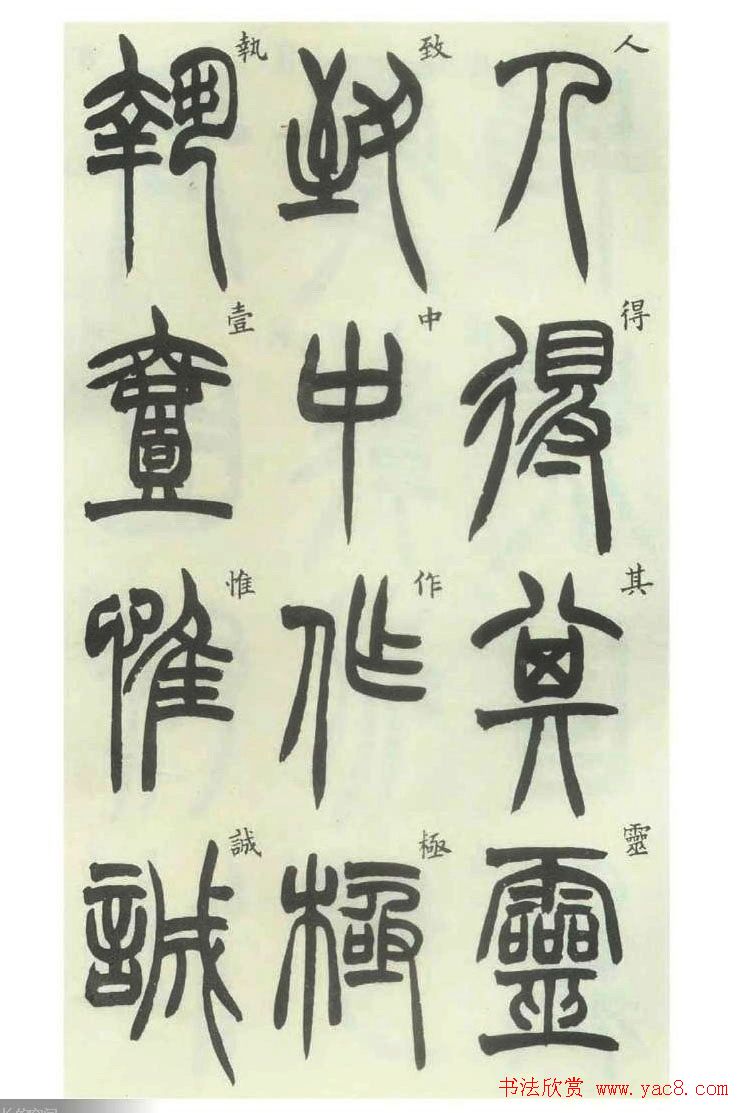 人得其靈
致中作極
執壹惟誠
书法欣赏 www.yac8.com